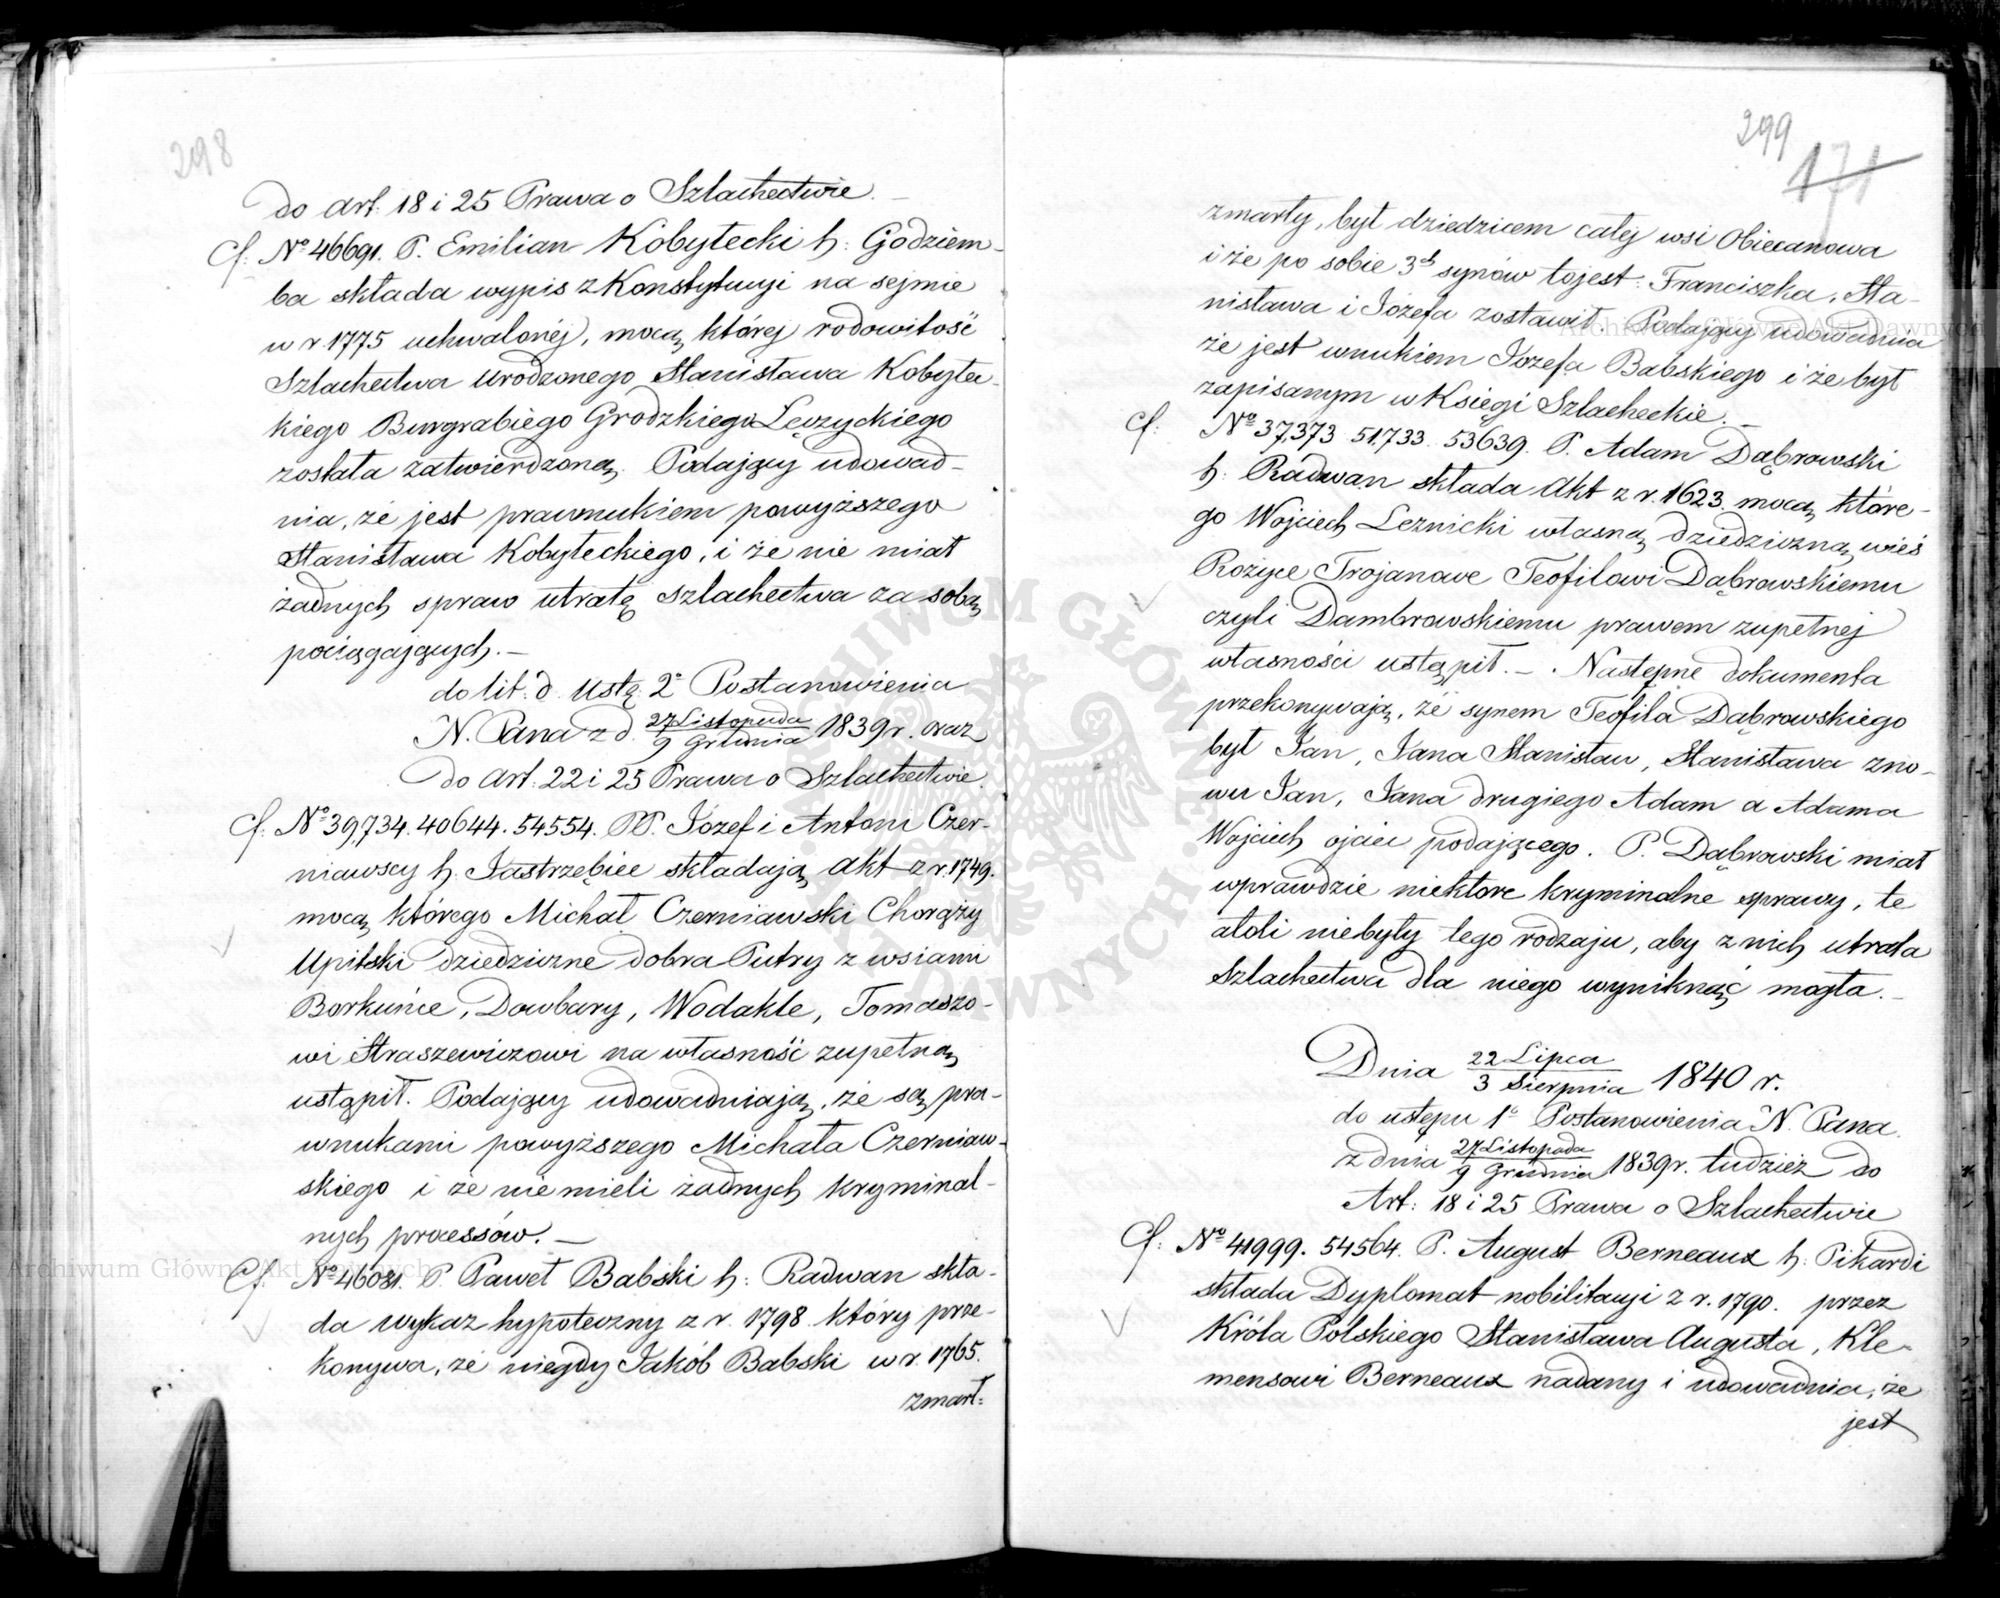 298
do Art: 18 i 25 Prawa o Szlachectwie. –
Cf: No 46691. P. Emilian Kobyłecki h: Godziem-
ba składa wypis z Konstytucyi na sejmie
w r 1775 uchwalonéj, mocą której rodowitość
Szlachectwa urodzonego Stanisława Kobyłec-
kiego Burgrabiego Grodzkiego Łęczyckiego
została zatwierdzoną. Podający udowad-
nia, że jest prawnukiem powyższego
Stanisława Kobyłeckiego, i że nie miał
żadnych spraw utratę szlachectwa za sobą
pociągających. –
do lit: d. Ustę: 2o Postanowienia
N. Pana z d. 27 Listopada / 9 Grudnia 1839 r. oraz
do Art: 22 i 25 Prawa o Szlachectwie.
Cf: No 39,734. 40644. 54554. PP. Józef i Antoni Czer-
niawscy h: Jastrzębiec składają Akt z r. 1749.
mocą którego Michał Czerniawski Chorąży
Upitski dziedziczne dobra Putry z wsiami
Borkuńce, Dowbary, Wodakle, Tomaszo-
wi Straszewiczowi na własność zupełną
ustąpił. Podający udowadniają, że są pra-
wnukami powyższego Michała Czerniaw-
skiego i że nie mieli żadnych kryminal-
nych processów. –
Cf: No 46081. P. Paweł Babski h: Radwan skła-
da wykaz hypoteczny z r. 1798. który prze-
konywa, że niegdy Jakób Babski w r. 1765.
zmarł:
299
171
zmarły, był dziedzicem całej wsi Obiecanowa
i że po sobie 3ch synów tojest: Franciszka, Sta-
nisława i Józefa zostawił. Podający udowadnia
że jest wnukiem Józefa Babskiego i że był
zapisanym w Księgi Szlacheckie. –
Cf: No 37,373 51,733. 53639. P. Adam Dąbrowski
h: Radwan składa Akt z r. 1623. mocą które-
go Wojciech Leznicki własną dziedziczną wieś
Rożyce Trojanowe Teofilowi Dąbrowskiemu
czyli Dambrowskiemu prawem zupełnej
własności ustąpił. – . Następne dokumenta
przekonywają, że synem Teofila Dąbrowskiego
był Jan, Jana Stanisław, Stanisława zno-
wu Jan, Jana drugiego Adam a Adama
Wojciech ojciec podającego. P. Dąbrowski miał
wprawdzie niektore kryminalne sprawy, te
atoli niebyły tego rodzaju, aby z nich utrata
Szlachectwa dla niego wyniknąć mogła. –
Dnia 22 Lipca / 3 Sierpnia 1840 r.
do ustępu 1o Postanowienia N. Pana
z dnia 27 Listopada / 9 Grudnia 1839 r. tudzież do
Art: 18 i 25 Prawa o Szlachectwie
Cf: No 41999. 54564. P. August Berneaux h: Pikardi
składa Dyplomat nobilitacyi z r. 1790. przez
Króla Polskiego Stanisława Augusta, Kle-
mensowi Berneaux nadany i udowadnia, że
jest
Archiwum Główne Akt Dawnych
Archiwum Główne Akt Dawnych
ARCHIWUM GŁÓWNE AKT DAWNYCH